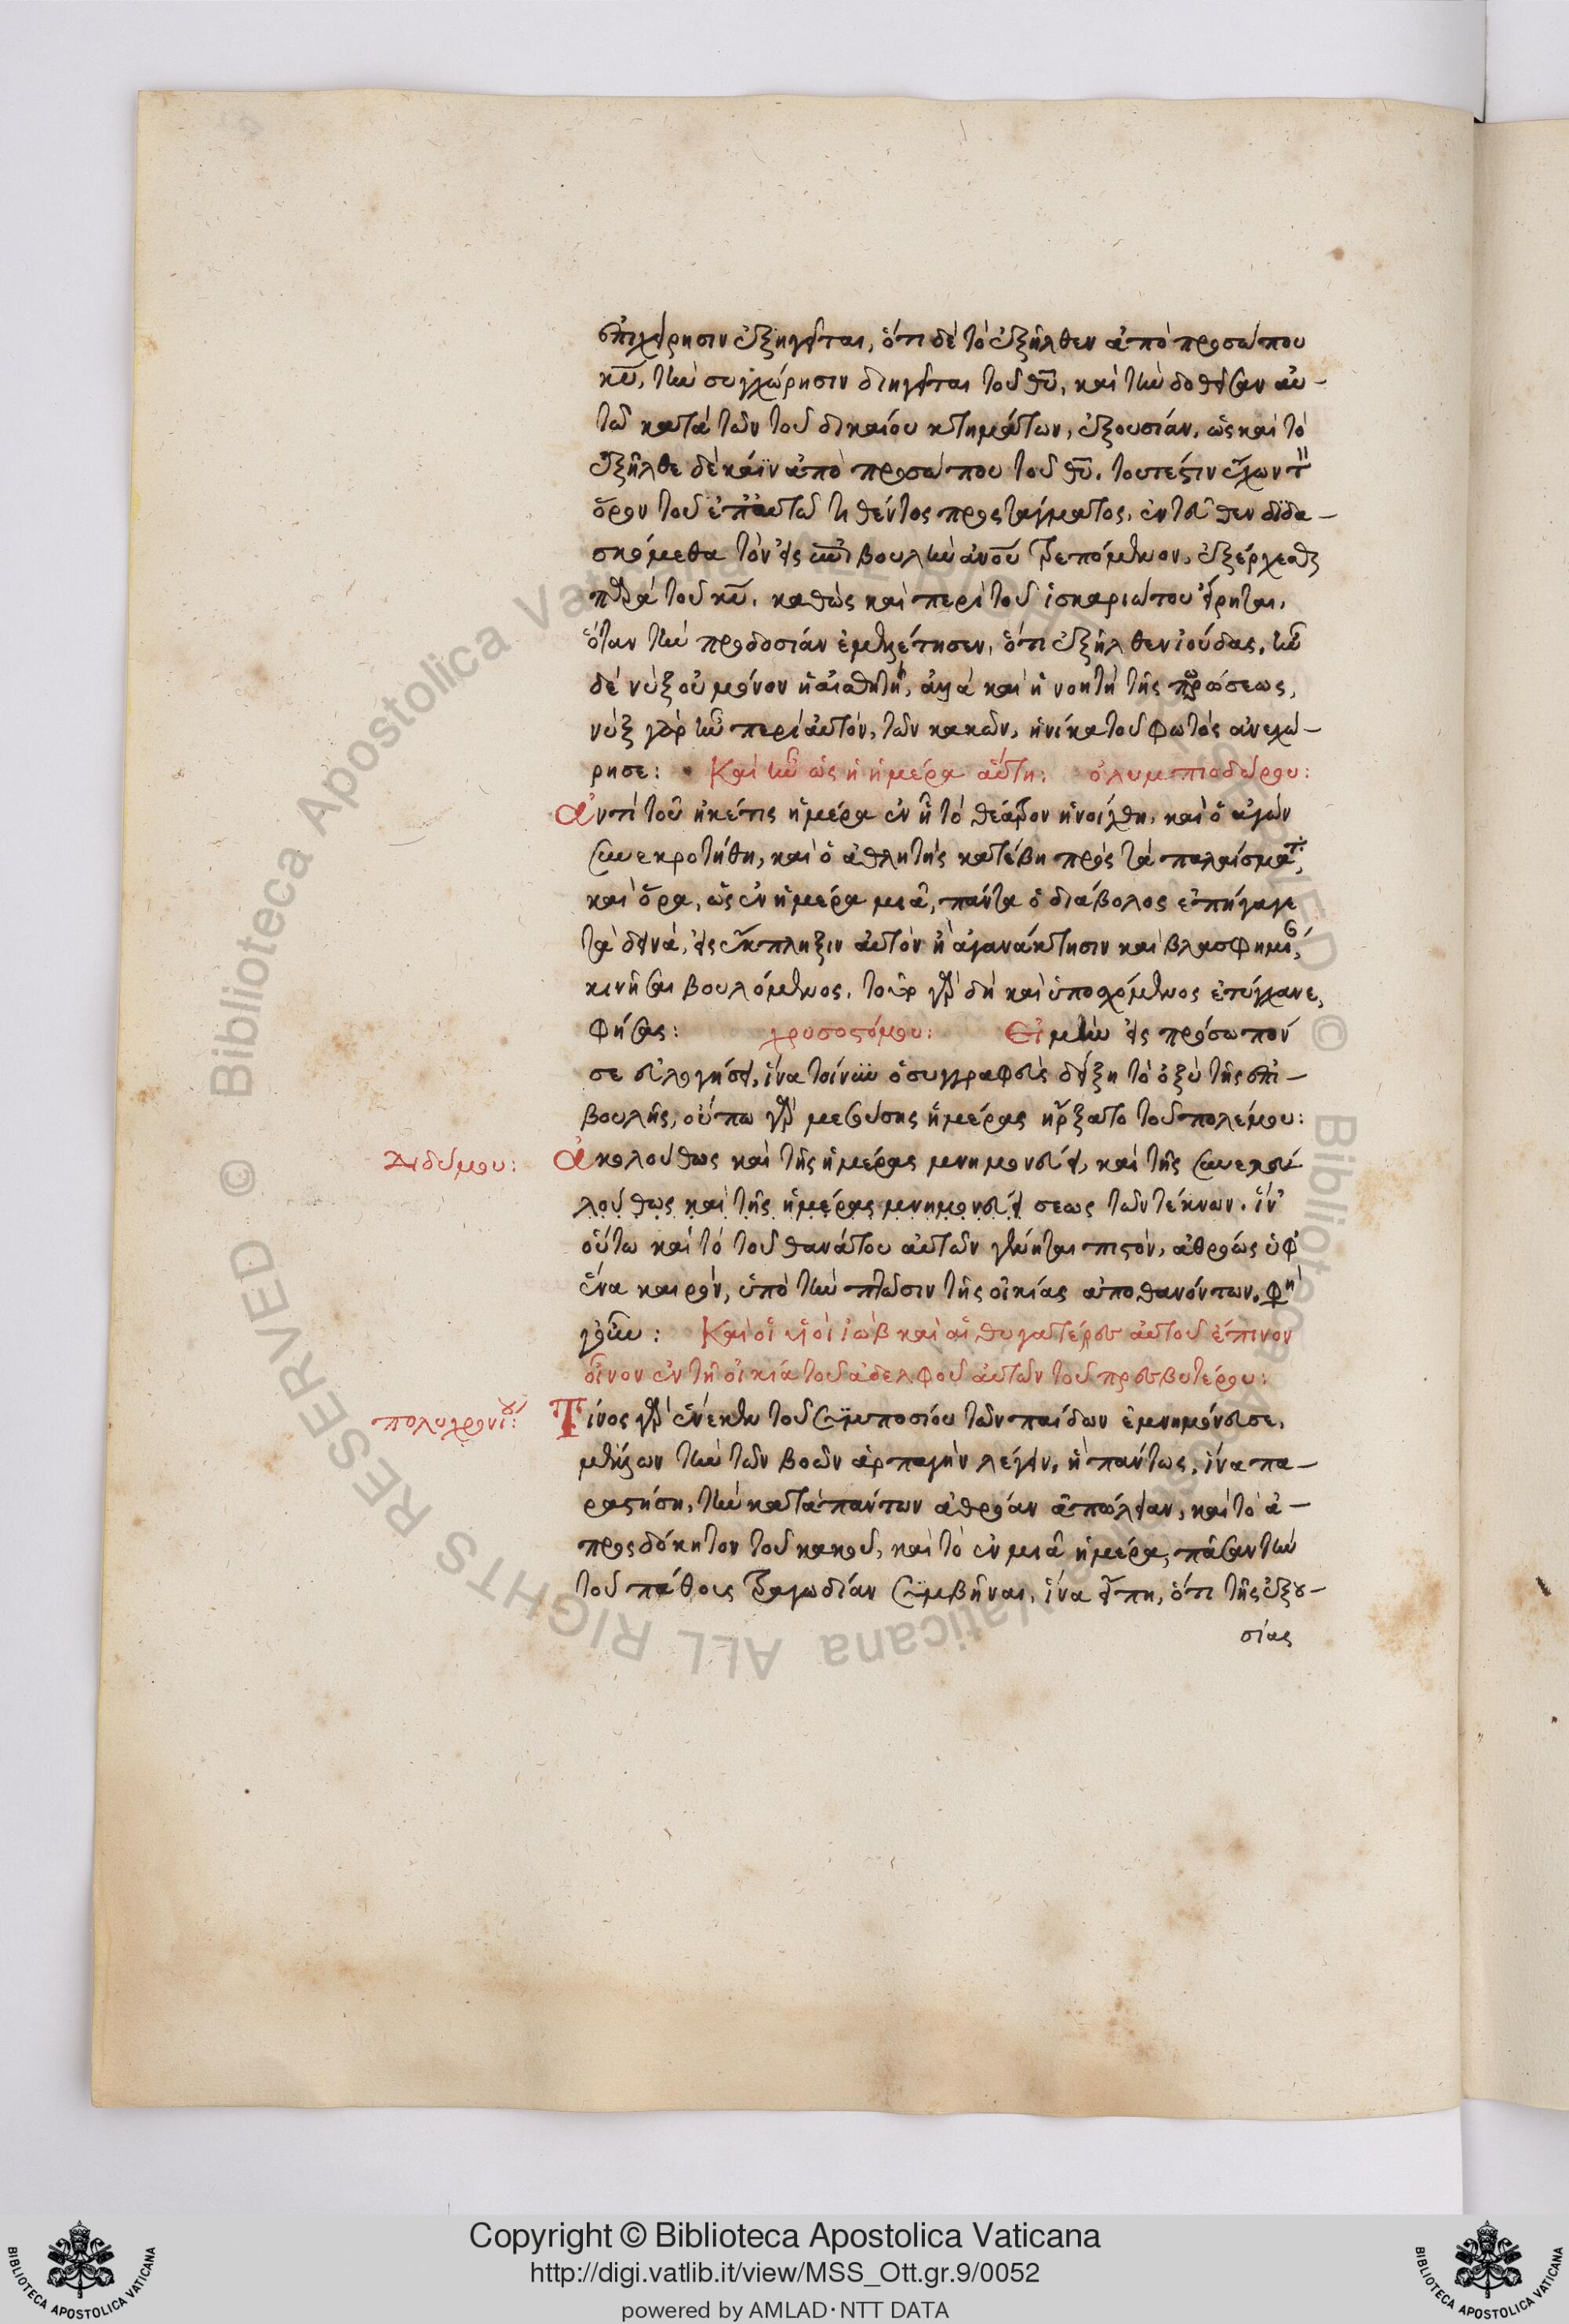 ἐπιχείρησιν ἐξηγεῖται, ὅτι δὲ τὸ ἐξῆλθεν ἀπὸ προσώπου
κῡ, τὴν συγχώρησιν διηγεῖται τοῦ θῡ, καὶ τὴν δοθεῖσαν αὐ-
τῶ κατὰ τῶν τοῦ δικαίου κτημάτων, ἐξουσίαν. ὡς καὶ τὸ
ἐξῆλθε δὲ κάϊν ἀπὸ προσώπου τοῦ θῡ. τουτέστιν ἔξω
ὅρον τοῦ ἐπ' αὐτῶ τεθέντος προστάγματος. ἐντεῦθεν διδα-
σκόμεθα τὸν εἰς βουλὴν ἀνοῦ τρεπόμενον, ἐξέρχεσθαι
παρὰ τοῦ κῡ. καθὼς καὶ περὶ τοῦ ἰσκαριώτου εἴρηται.
ὅταν τὴν προδοσίαν ἐμελέτησεν, ὅτι ἐξῆλθεν ἰούδας. ἦν
δὲ νὺξ οὐ μόνον ἡ αἰσθητὴ, ἀλλὰ καὶ ἡ νοητὴ τῆς πωρώσεως,
νὺξ γὰρ ἦν περὶ αὐτὸν, τῶν κακῶν, ἡνίκα τοῦ φωτὸς ἀνεχώ-
ρησε: Καὶ ἦν ὡς ἡ ἡμέρα αὕτη: ὀλυμπιοδώρου:
Ἀντὶ τοῦ ἡκέτις ἡμέρα ἐν ᾗ τὸ θέατρον ἠνοίχθη, καὶ ὁ ἀγὼν
συνεκροτήθη, καὶ ὁ ἀθλητὴς κατέβη πρὸς τὰ παλαίσματα,
καὶ ὅρα, ὡς ἐν ἡμέρα μιᾶ, πάντα ὁ διάβολος ἐπήγαγε
τὰ δεινὰ, εἰς ἔκπληξιν αὐτὸν ἢ ἀγανάκτησιν καὶ βλασφημίαν,
κινῆσαι βουλόμενος. γὰρ δὴ καὶ ὑποσχόμενος ἐτύγχανε,
φήσας: χρυσοστόμου: Εἰ μὴν εἰς πρόσωπόν
σε εὐλογήσει, ἵνα τοίνυν ὁ συγγραφεὺς δείξη τὸ ὀξὺ τῆς ἐπι-
βουλῆς, οὔπω γὰρ μεσούσης ἡμέρας ἤρξατο τοῦ πολέμου:
Διδύμου: Ἀκολούθως καὶ τῆς ἡμέρας μνημονεύει, καὶ τῆς συνελεύ
λούθως καὶ τῆς ἡμέρας μνημονεύει σεως τῶν τέκνων. ἵν'
οὕτω καὶ τὸ τοῦ θανάτου αὐτῶν γένηται πιστὸν, ἀθρόως ὑφ'
ἕνα καιρὸν, ὑπὸ τὴν πτῶσιν τῆς οἰκίας ἀποθανόντων. φη
γοῦν: Καὶ οἱ υἱοὶ ἰὼβ καὶ αἱ θυγατέρες αὐτοῦ ἔπινον
οἶνον ἐν τῆ οἰκία τοῦ ἀδελφοῦ αὐτῶν τοῦ πρεσβυτέρου:
πολυχρονίου: Τίνος γὰρ ἕνεκεν τοῦ συμποσίου τῶν παίδων ἐμνημόνευσε.
μέλλων τὴν τῶν βοῶν ἁρπαγὴν λέγειν. ἢ πάντως, ἵνα πα-
ραστήση, τὴν κατὰ πάντων ἀθρόαν ἀπώλειαν, καὶ τὸ ἀ-
προσδόκητον τοῦ κακοῦ, καὶ τὸ ἐν μιᾶ ἡμέρα, πᾶσαν τὴν
τοῦ πάθους τραγωδίαν συμβῆναι, ἵνα εἴπη, ὅτι τῆς ἐξου-
σίας
Copyright © Biblioteca Apostolica Vaticana
http://digi.vatlib.it/view/MSS_Ott.gr.9/0052
powered by AMLAD·NTT DATA
BIBLIOTECA APOSTOLICA VATICANA
BIBLIOTECA APOSTOLICA VATICANA
© Biblioteca Apostolica Vaticana ALL RIGHTS RESERVED © Biblioteca Apostolica Vaticana ALL RIGHTS RESERVED